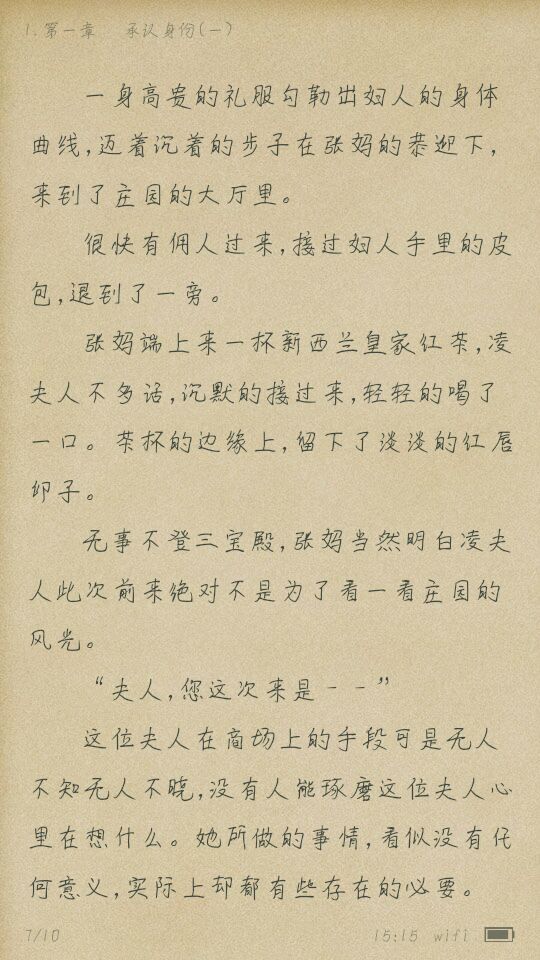 1.第一章 承认身份(一)
一身高贵的礼服勾勒出妇人的身体
曲线,迈着沉着的步子在张妈的恭迎下,
来到了庄园的大厅里。
很快有佣人过来,接过妇人手里的皮
包,退到了一旁。
张妈端上来一杯新西兰皇家红茶,凌
夫人不多话,沉默的接过来,轻轻的喝了
一口。茶杯的边缘上,留下了淡淡的红唇
印子。
无事不登三宝殿,张妈当然明白凌夫
人此次前来绝对不是为了看一看庄园的
风光。
“夫人,您这次来是--”
这位夫人在商场上的手段可是无人
不知无人不晓,没有人能琢磨这位夫人心
里在想什么。她所做的事情,看似没有任
何意义,实际上却都有些存在的必要。
7/10 15:15 wifi